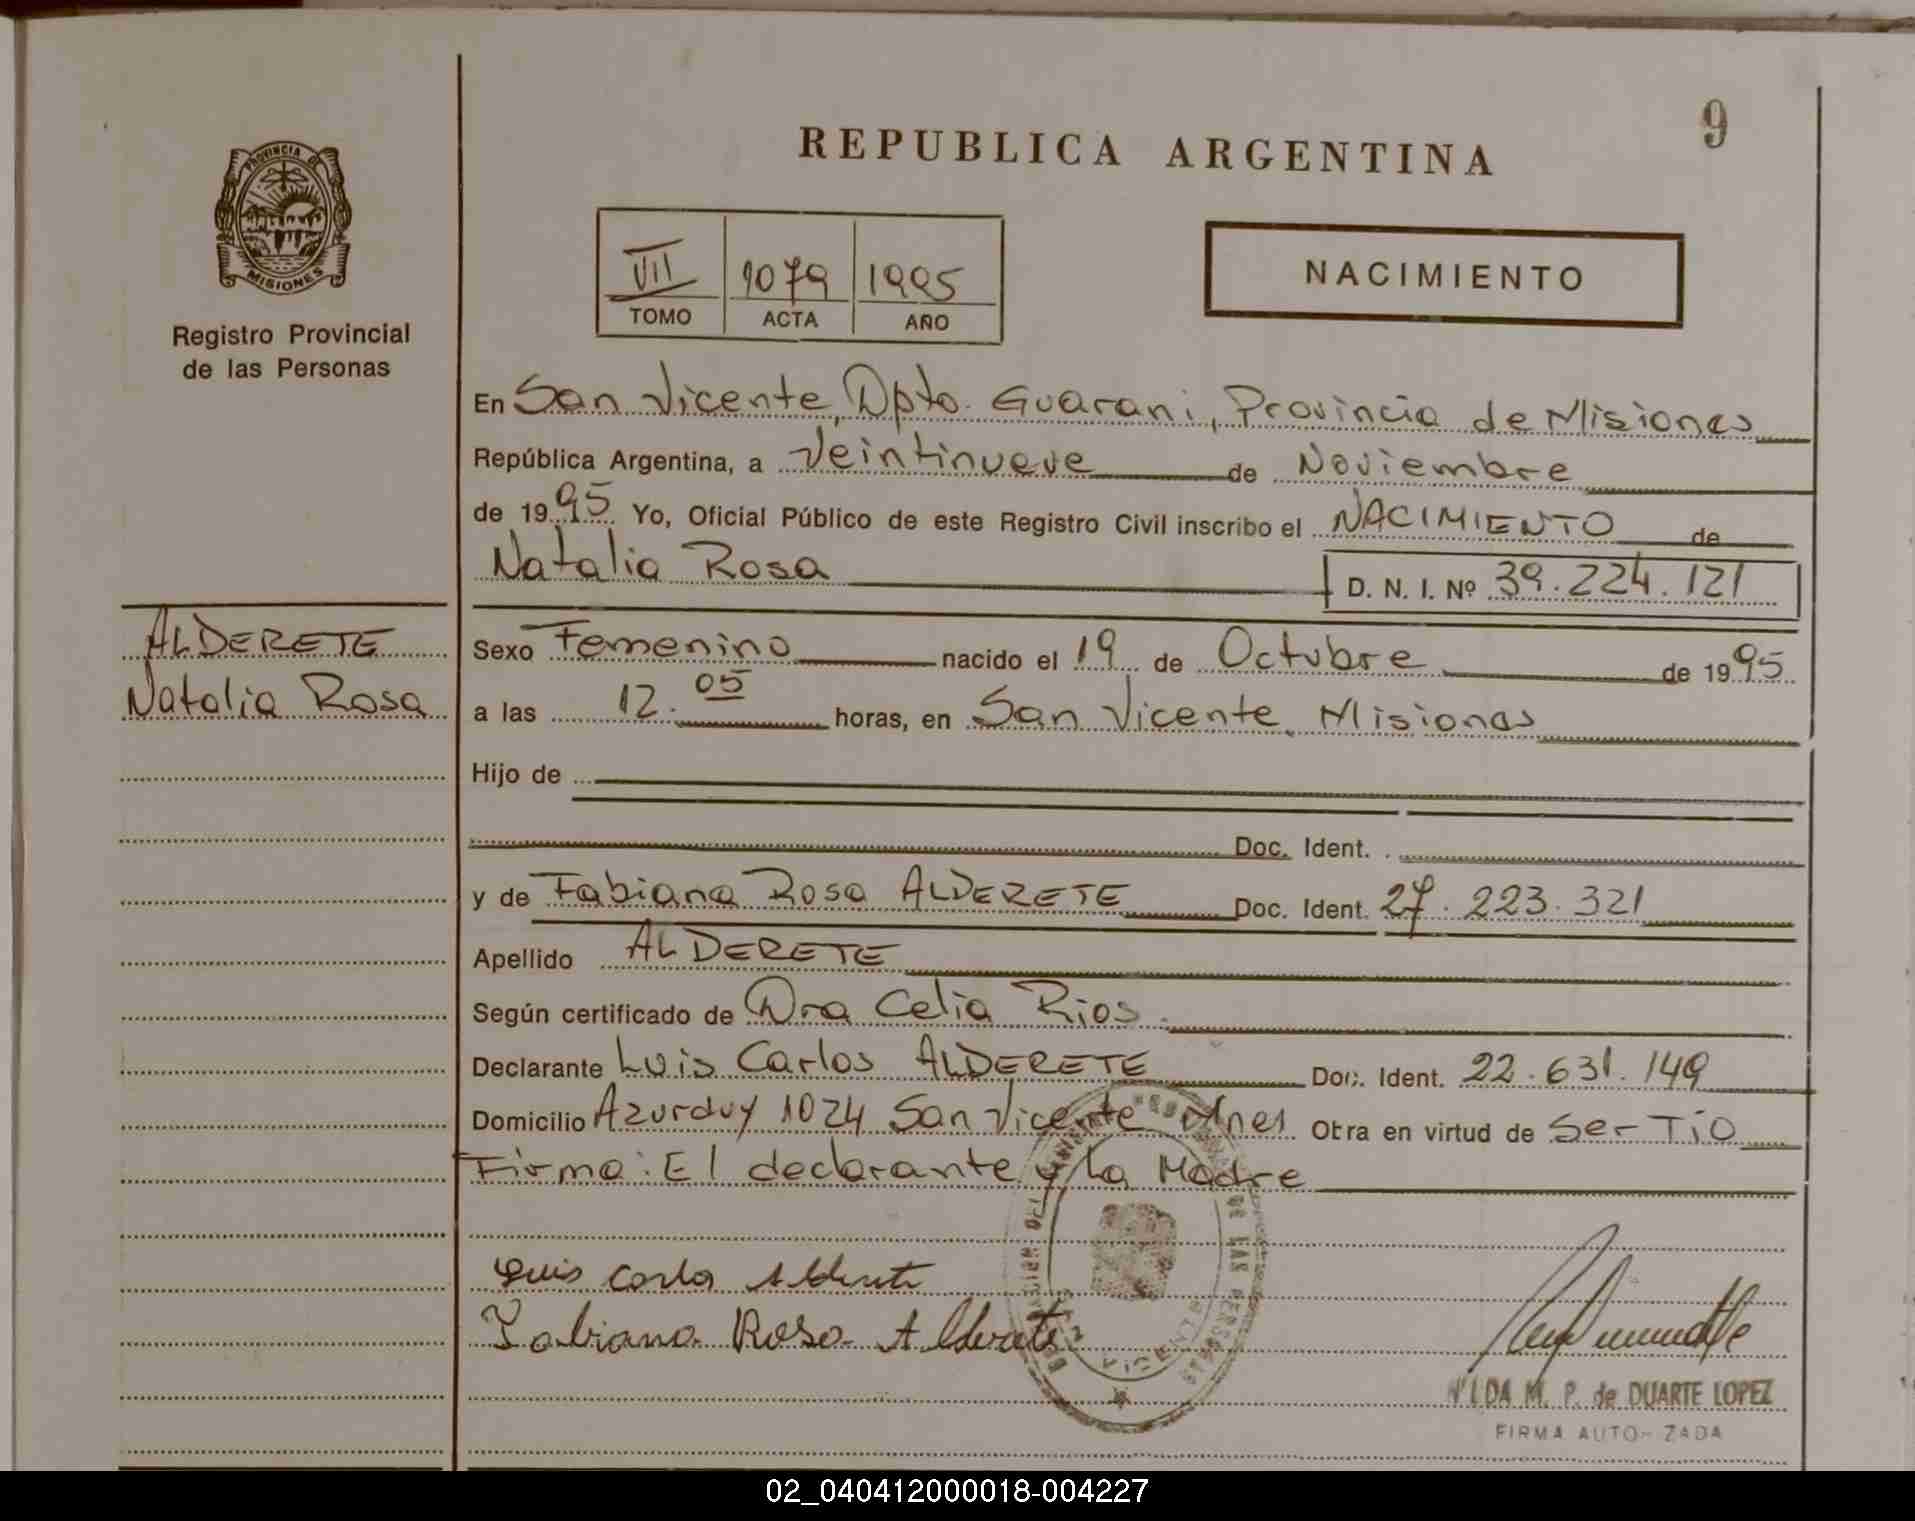 9
REPUBLICA ARGENTINA
PROVINCIA DE
MISIONES
Registro Provincial
de las Personas
VII 1079 1995
TOMO ACTA AÑO
NACIMIENTO
En San Vicente, Dpto. Guarani, Provincia de Misiones
República Argentina, a Veintinueve de Noviembre
de 1995 Yo, Oficial Público de este Registro Civil inscribo el NACIMIENTO de
Natalia Rosa D. N. I. Nº 39.224.121
ALDERETE
Natalia Rosa
Sexo Femenino nacido el 19 de Octubre de 1995
a las 12.05 horas, en San Vicente Misiones
Hijo de
Doc. Ident.
y de Fabiana Rosa ALDERETE Doc. Ident. 27.223.321
Apellido ALDERETE
Según certificado de Dra Celia Rios.
Declarante Luis Carlos ALDERETE Doc. Ident. 22.631.149
Domicilio Azurduy 1024 San Vicente Mnes Otra en virtud de Ser Tío
Firma: El declarante y La Madre
Luis Carlos Alderete
Fabiana Rosa Alderete
DE LAS PERSONAS
VICENTE
M. P. de DUARTE LOPEZ
FIRMA AUTO- ZADA
02_040412000018-004227